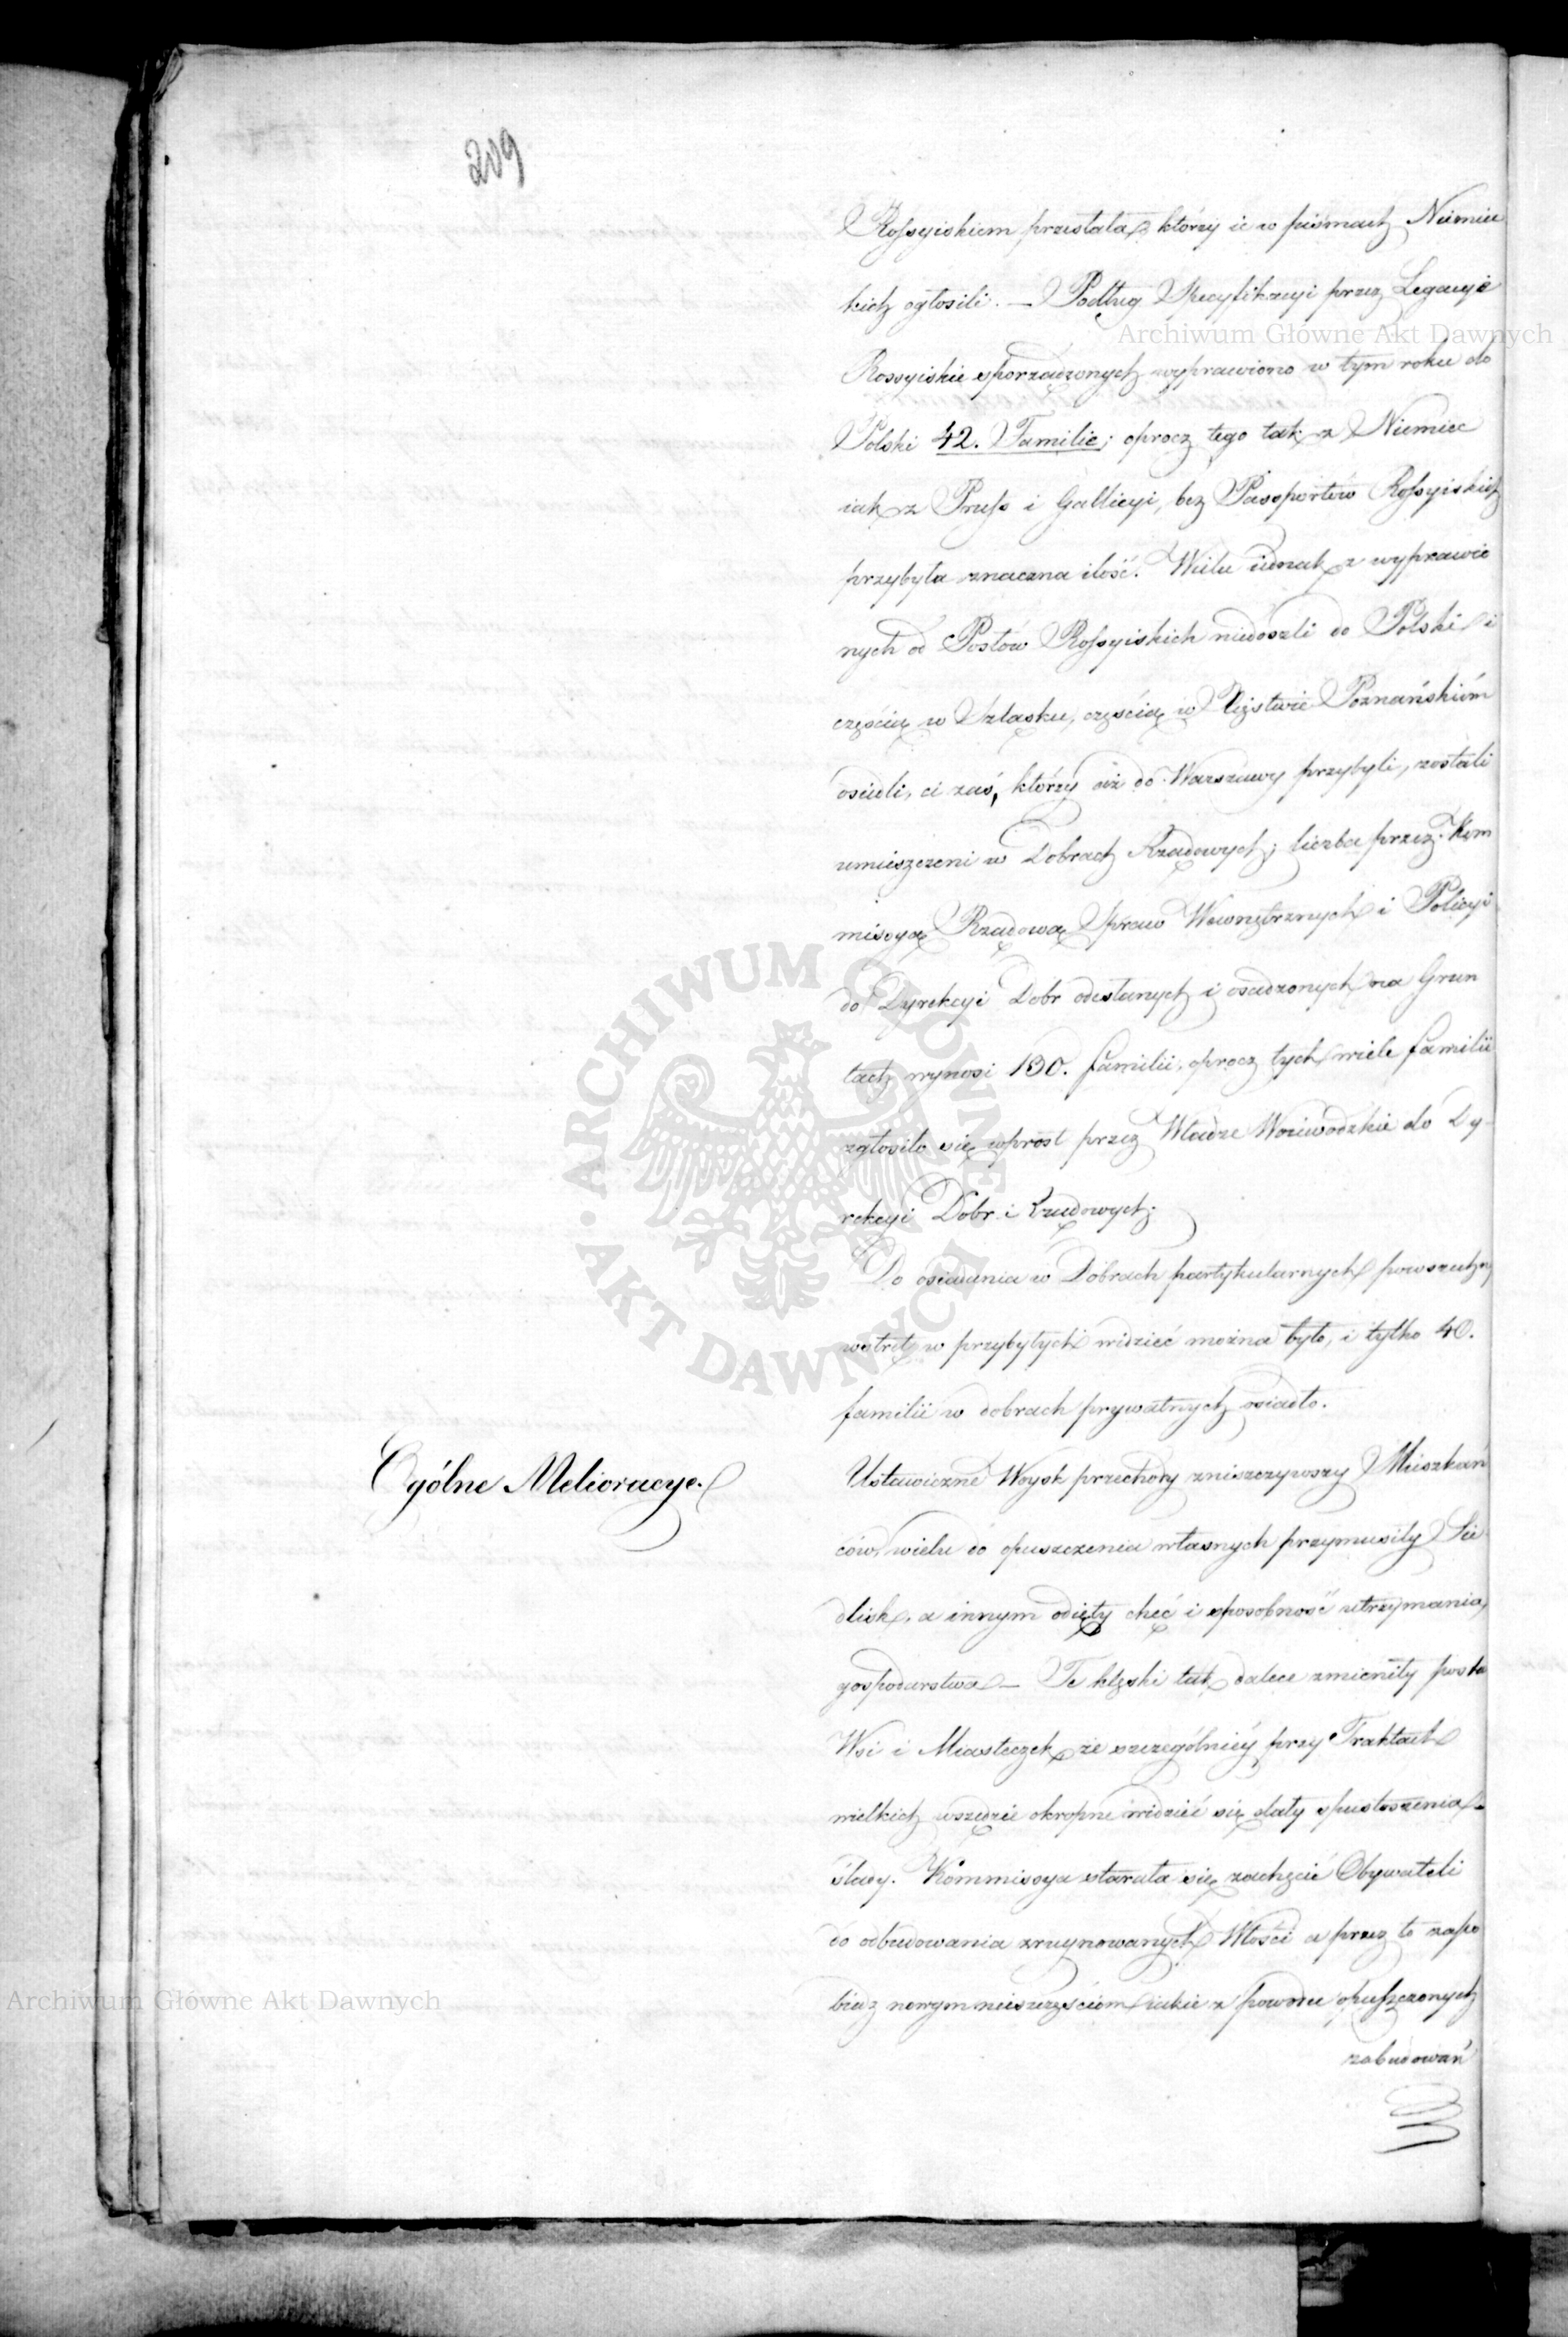 209
Rossyiskiem przesłała, którzy ie w pismach Niemiec
kich ogłosili. — Podług Specyfikacyi przez Legacye
Archiwum Główne Akt Dawnych
Rossyiskie sporządzonych wyprawiono w tym roku do
Polski 42. Familie; oprocz tego tak z Niemiec
iak z Pruss i Gallicyi, bez Passportów Rossyiskich
przybyła znaczna ilość. Wielu iednak z wyprawio
nych od Posłów Rossyiskich niedoszli do Polski i
częścią w Szląsku, częścią w Xięstwie Poznańskiém
osiedli, ci zaś, którzy aż do Warszawy przybyli, zostali
umieszczeni w Dobrach Rządowych; liczba przez Kom
missyą Rządową Spraw Wewnętrznych i Policyi
do Dyrekcyi Dobr odesłanych i osadzonych na Grun
tach wynosi 130. familii, oprocz tych wiele familii
zgłosiło się wprost przez Władze Woiewodzkie do Dy-
rekcyi Dobr i Rządowych.
Do osiadania w Dobrach partykularnych powszechny
wstręt w przybyłych widzieć można było, i tylko 40.
familii w dobrach prywatnych osiadło.
Ogólne Melioracye.
Ustawiczne Woysk przechody zniszczywszy Mieszkań
ców, wielu do opuszczenia własnych przymusiły Sie
dlisk, a innym odięły chęć i sposobność utrzymania
gospodarstwa — Te klęski tak dalece zmieniły posta
Wsi i Miasteczek, że szczególniéy przy Traktach
wielkich wszędzie okropne widzieć się dały spustoszenia
ślady. Kommissya starała się zachęcić Obywateli
do odbudowania zruynowanych Włości a przez to zapo
biedz nowym nieszczęściom iakie z powodu opuszczonych
Archiwum Główne Akt Dawnych
zabudowań
ARCHIWUM GŁÓWNE AKT DAWNYCH